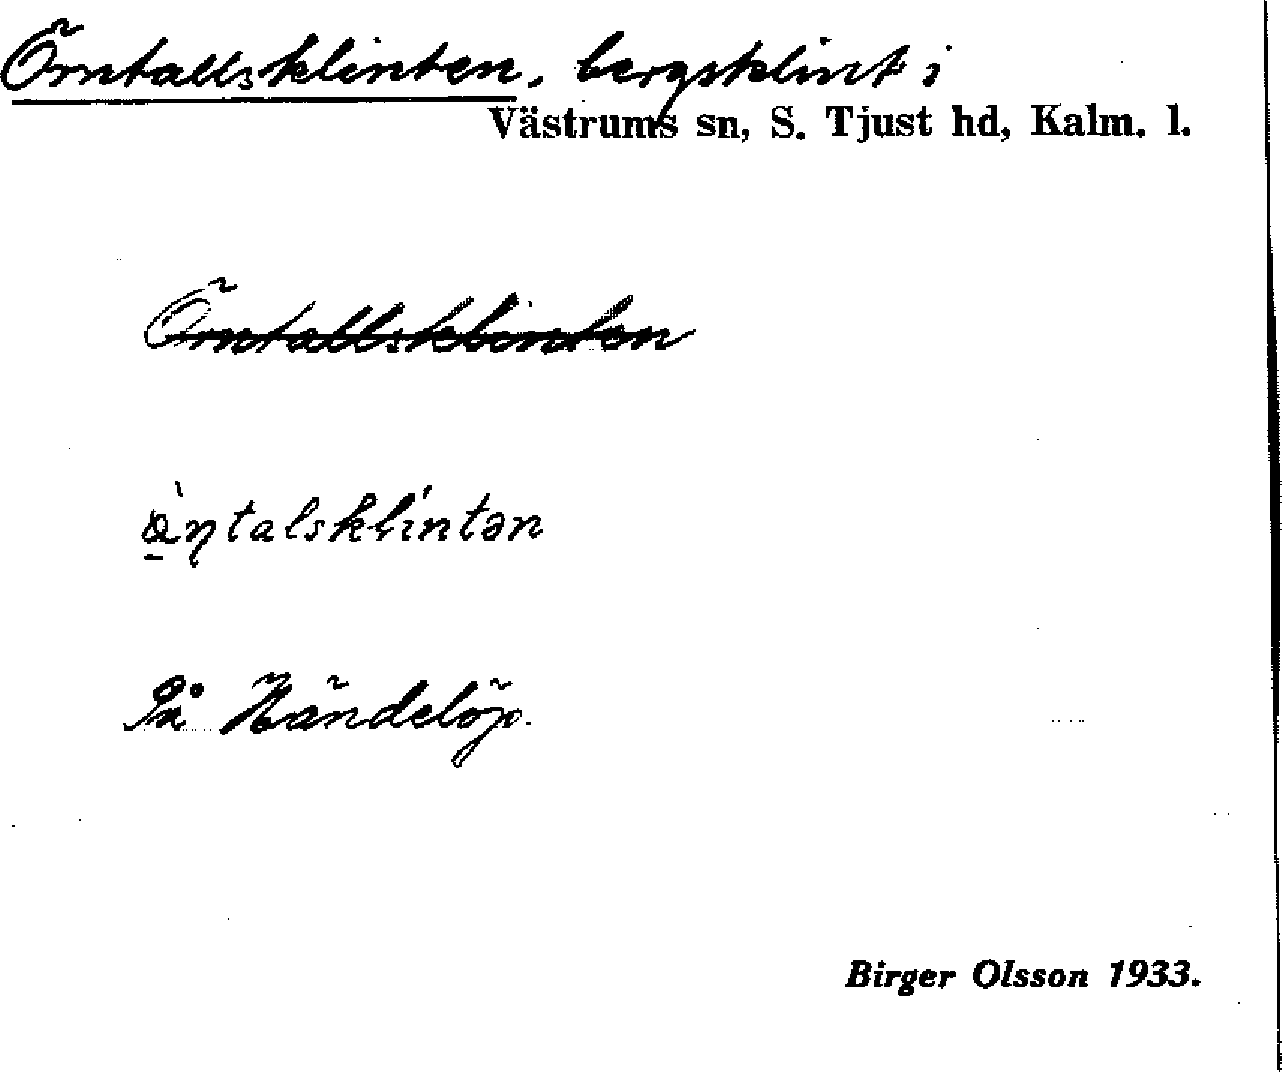 Örntallsklinten, bergsklint i
Västrums sn, S. Tjust hd, Kalm. l.
Örntallsklinten
På Händelöp.
Birger Olsson 1933.